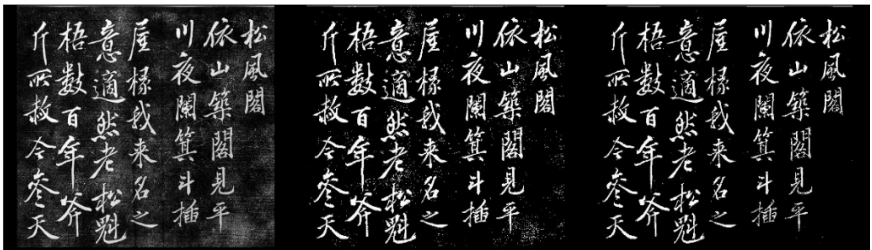 松風閣
依山築閣見平
川夜闌箕斗插
屋椽我来名之
意適然老松魁
梧數百年斧
斤所赦今參天
松風閣
依山築閣見平
川夜闌箕斗插
屋椽我来名之
意適然老松魁
梧數百年斧
斤所赦今參天
松風閣
依山築閣見平
川夜闌箕斗插
屋椽我来名之
意適然老松魁
梧數百年斧
斤所赦今參天